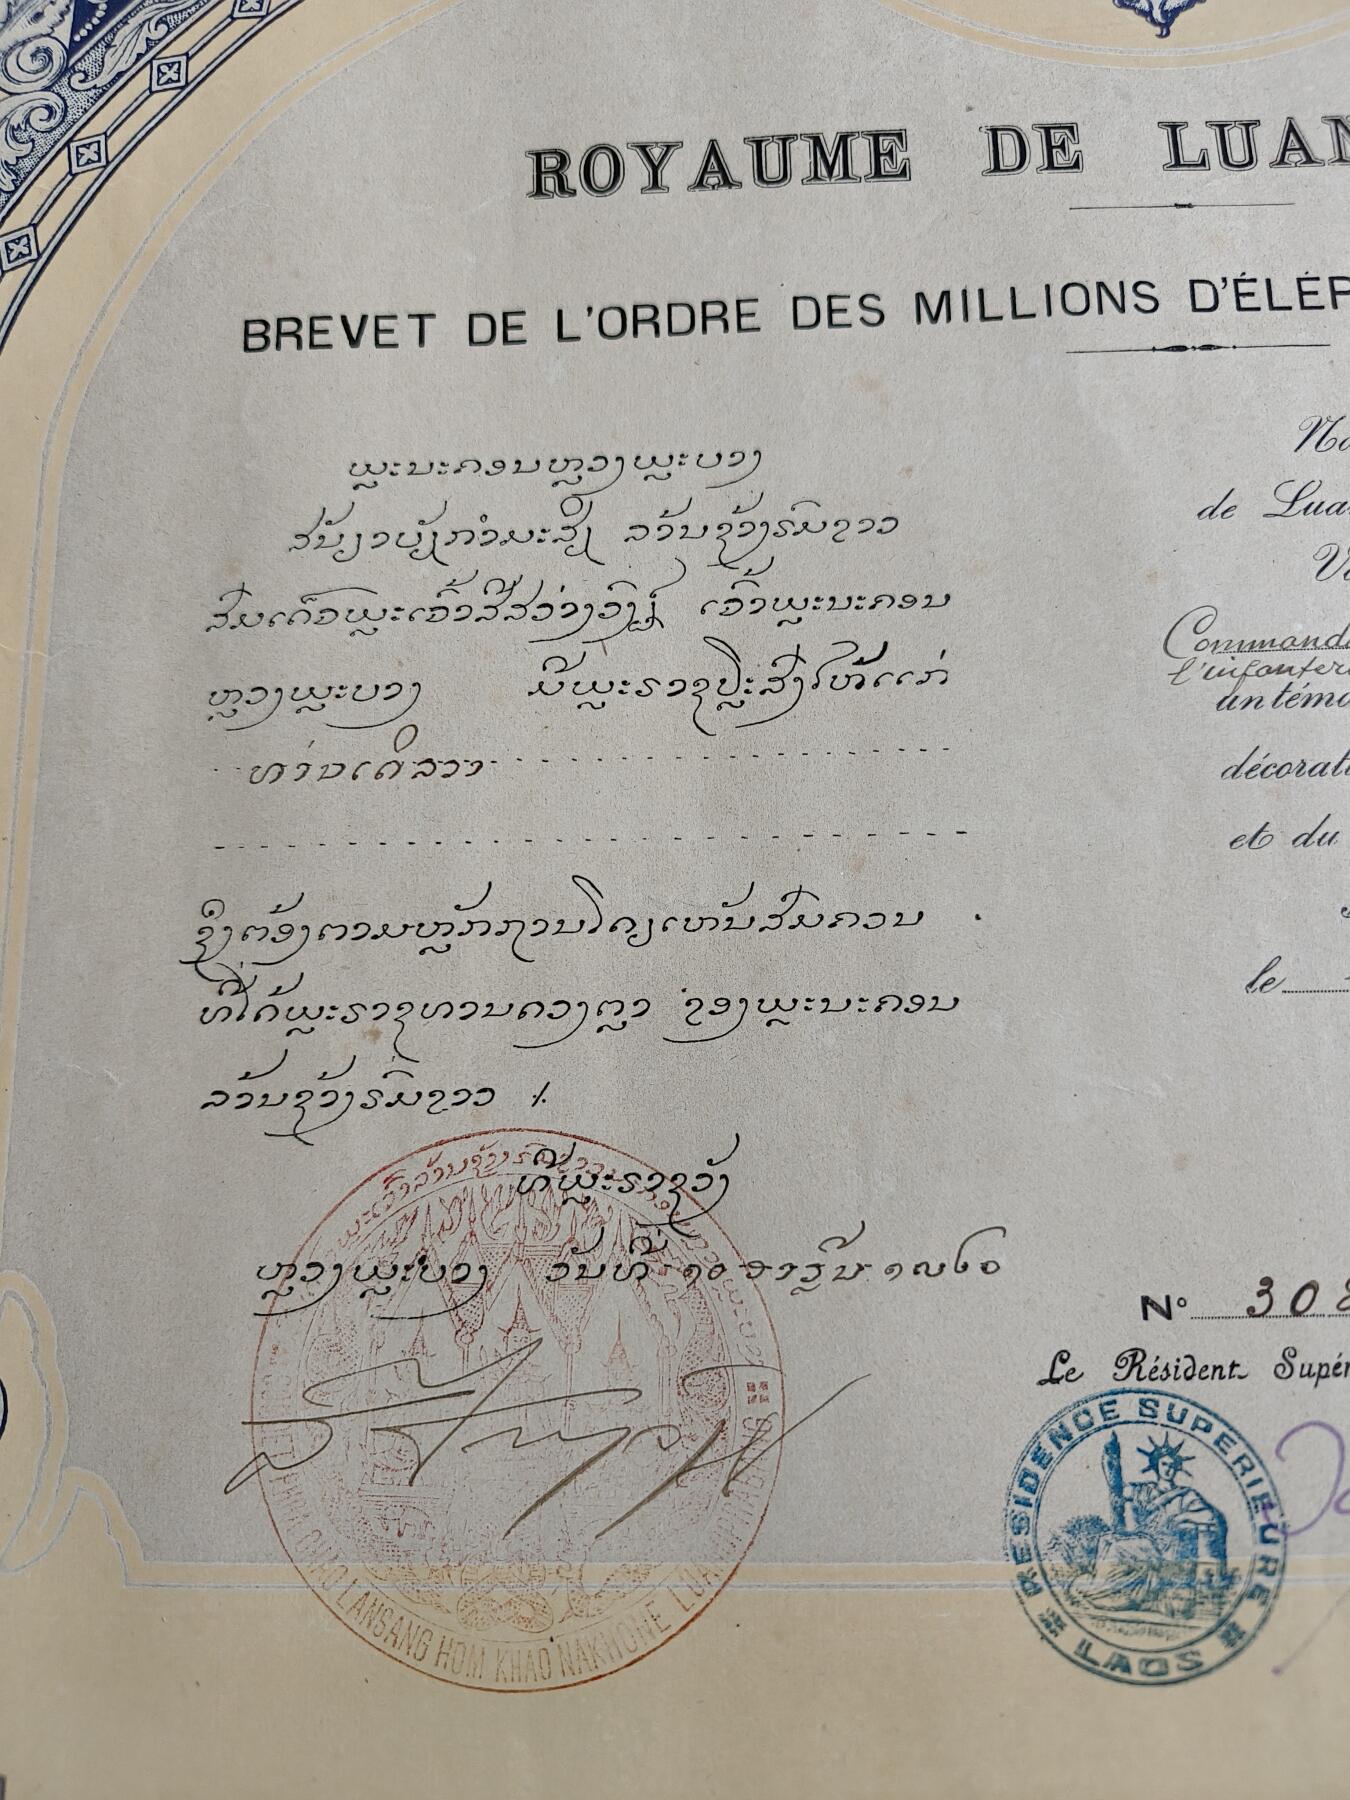 ROYAUME DE LUAN
BREVET DE L'ORDRE DES MILLIONS D'ÉLÉP
ພຼະນະຄອນຫຼວງພຼະບາງ
ລວ້ນຊ້າງຮົ່ມຂາວ
ສົມເດັຈພຼະເຈົ້າສີສວ່າງວົງ ເຈົ້າພຼະນະຄອນ
ຫຼວງພຼະບາງ ມີພຼະຣາຊປຼະສົງໃຫ້ແກ່
ທ່ານເດີລາວ
ຊຶ່ງຕ້ອງຕາມຫຼັກການໂດຽເຫັນສົມຄວນ
ທີ່ໄດ້ພຼະຣາຊທານດວງຕຼາ ຂອງພຼະນະຄອນ
ລວ້ນຊ້າງຮົ່ມຂາວ ⁒
ທີ່ພຼະຣາຊວັງ
ຫຼວງພຼະບາງ ວັນທີ່ ໑໐
PHRA CHAO LANSANG HOM KHAO NAKHONE LUANGPRABANG
No
de Lua
Commanda
l'infanteri
un témo
décorati
et du
le
N° 308
Le Résident Supér
RESIDENCE SUPERIEURE
LAOS